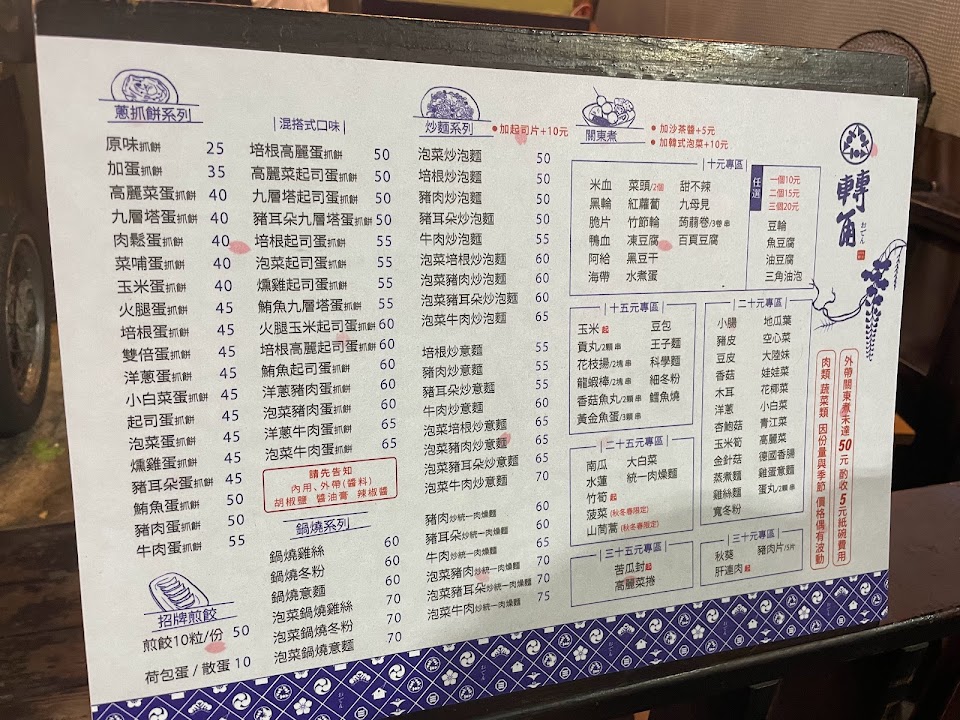 蔥抓餅系列
原味抓餅 25
加蛋抓餅 35
高麗菜蛋抓餅 40
九層塔蛋抓餅 40
肉鬆蛋抓餅 40
菜哺蛋抓餅 40
玉米蛋抓餅 40
火腿蛋抓餅 45
培根蛋抓餅 45
雙倍蛋抓餅 45
洋蔥蛋抓餅 45
小白菜蛋抓餅 45
起司蛋抓餅 45
泡菜蛋抓餅 45
燻雞蛋抓餅 45
豬耳朵蛋抓餅 45
鮪魚蛋抓餅 50
豬肉蛋抓餅 50
牛肉蛋抓餅 55
招牌煎餃
煎餃10粒/份 50
荷包蛋/散蛋 10
混搭式口味
培根高麗蛋抓餅 50
高麗菜起司蛋抓餅 50
九層塔起司蛋抓餅 50
豬耳朵九層塔蛋抓餅 50
培根起司蛋抓餅 55
泡菜起司蛋抓餅 55
燻雞起司蛋抓餅 55
鮪魚九層塔蛋抓餅 55
火腿玉米起司蛋抓餅 60
培根高麗起司蛋抓餅 60
鮪魚起司蛋抓餅 60
洋蔥豬肉蛋抓餅 60
泡菜豬肉蛋抓餅 60
洋蔥牛肉蛋抓餅 65
泡菜牛肉蛋抓餅 65
請先告知
內用、外帶(醬料)
胡椒鹽 醬油膏 辣椒醬
鍋燒系列
鍋燒雞絲 60
鍋燒冬粉 60
鍋燒意麵 60
泡菜鍋燒雞絲 70
泡菜鍋燒冬粉 70
泡菜鍋燒意麵 70
炒麵系列
●加起司片+10元
泡菜炒泡麵 50
培根炒泡麵 50
豬肉炒泡麵 50
豬耳朵炒泡麵 50
牛肉炒泡麵 55
泡菜培根炒泡麵 60
泡菜豬肉炒泡麵 60
泡菜豬耳朵炒泡麵 60
泡菜牛肉炒泡麵 65
培根炒意麵 55
豬肉炒意麵 55
豬耳朵炒意麵 55
牛肉炒意麵 60
泡菜培根炒意麵 65
泡菜豬肉炒意麵 65
泡菜豬耳朵炒意麵 65
泡菜牛肉炒意麵 70
豬肉炒統一肉燥麵 60
豬耳朵炒統一肉燥麵 60
牛肉炒統一肉燥麵 65
泡菜豬肉炒統一肉燥麵 70
泡菜豬耳朵炒統一肉燥麵 70
泡菜牛肉炒統一肉燥麵 75
關東煮
●加沙茶醬+5元
●加韓式泡菜+10元
十元專區
米血 菜頭/2個 甜不辣
黑輪 紅蘿蔔 九母見
脆片 竹節輪 蒟蒻卷/3卷 串
鴨血 凍豆腐 百頁豆腐
阿給 黑豆干
海帶 水煮蛋
任選
一個10元
二個15元
三個20元
豆輪
魚豆腐
油豆腐
三角油泡
十五元專區
玉米起 豆包
貢丸/2顆 串 王子麵
花枝揚/2塊 串 科學麵
龍蝦棒/2塊 串 細冬粉
香菇魚丸/2顆 串 鱈魚燒
黃金魚蛋/3顆 串
二十五元專區
南瓜 大白菜
水蓮 統一肉燥麵
竹筍起
菠菜(秋冬春限定)
山茼蒿(秋冬春限定)
三十五元專區
苦瓜封起
高麗菜捲
二十元專區
小腸 地瓜葉
豬皮 空心菜
豆皮 大陸妹
香菇 娃娃菜
木耳 花椰菜
洋蔥 小白菜
杏鮑菇 青江菜
玉米筍 高麗菜
金針菇 德國香腸
蒸煮麵 雞蛋意麵
雞絲麵 蛋丸/2顆 串
寬冬粉
三十元專區
秋葵 豬肉片/5片
肝連肉起
轉角
おでん
外帶關東煮未達50元酌收5元紙碗費用
肉類 蔬菜類 因份量與季節 價格偶有波動